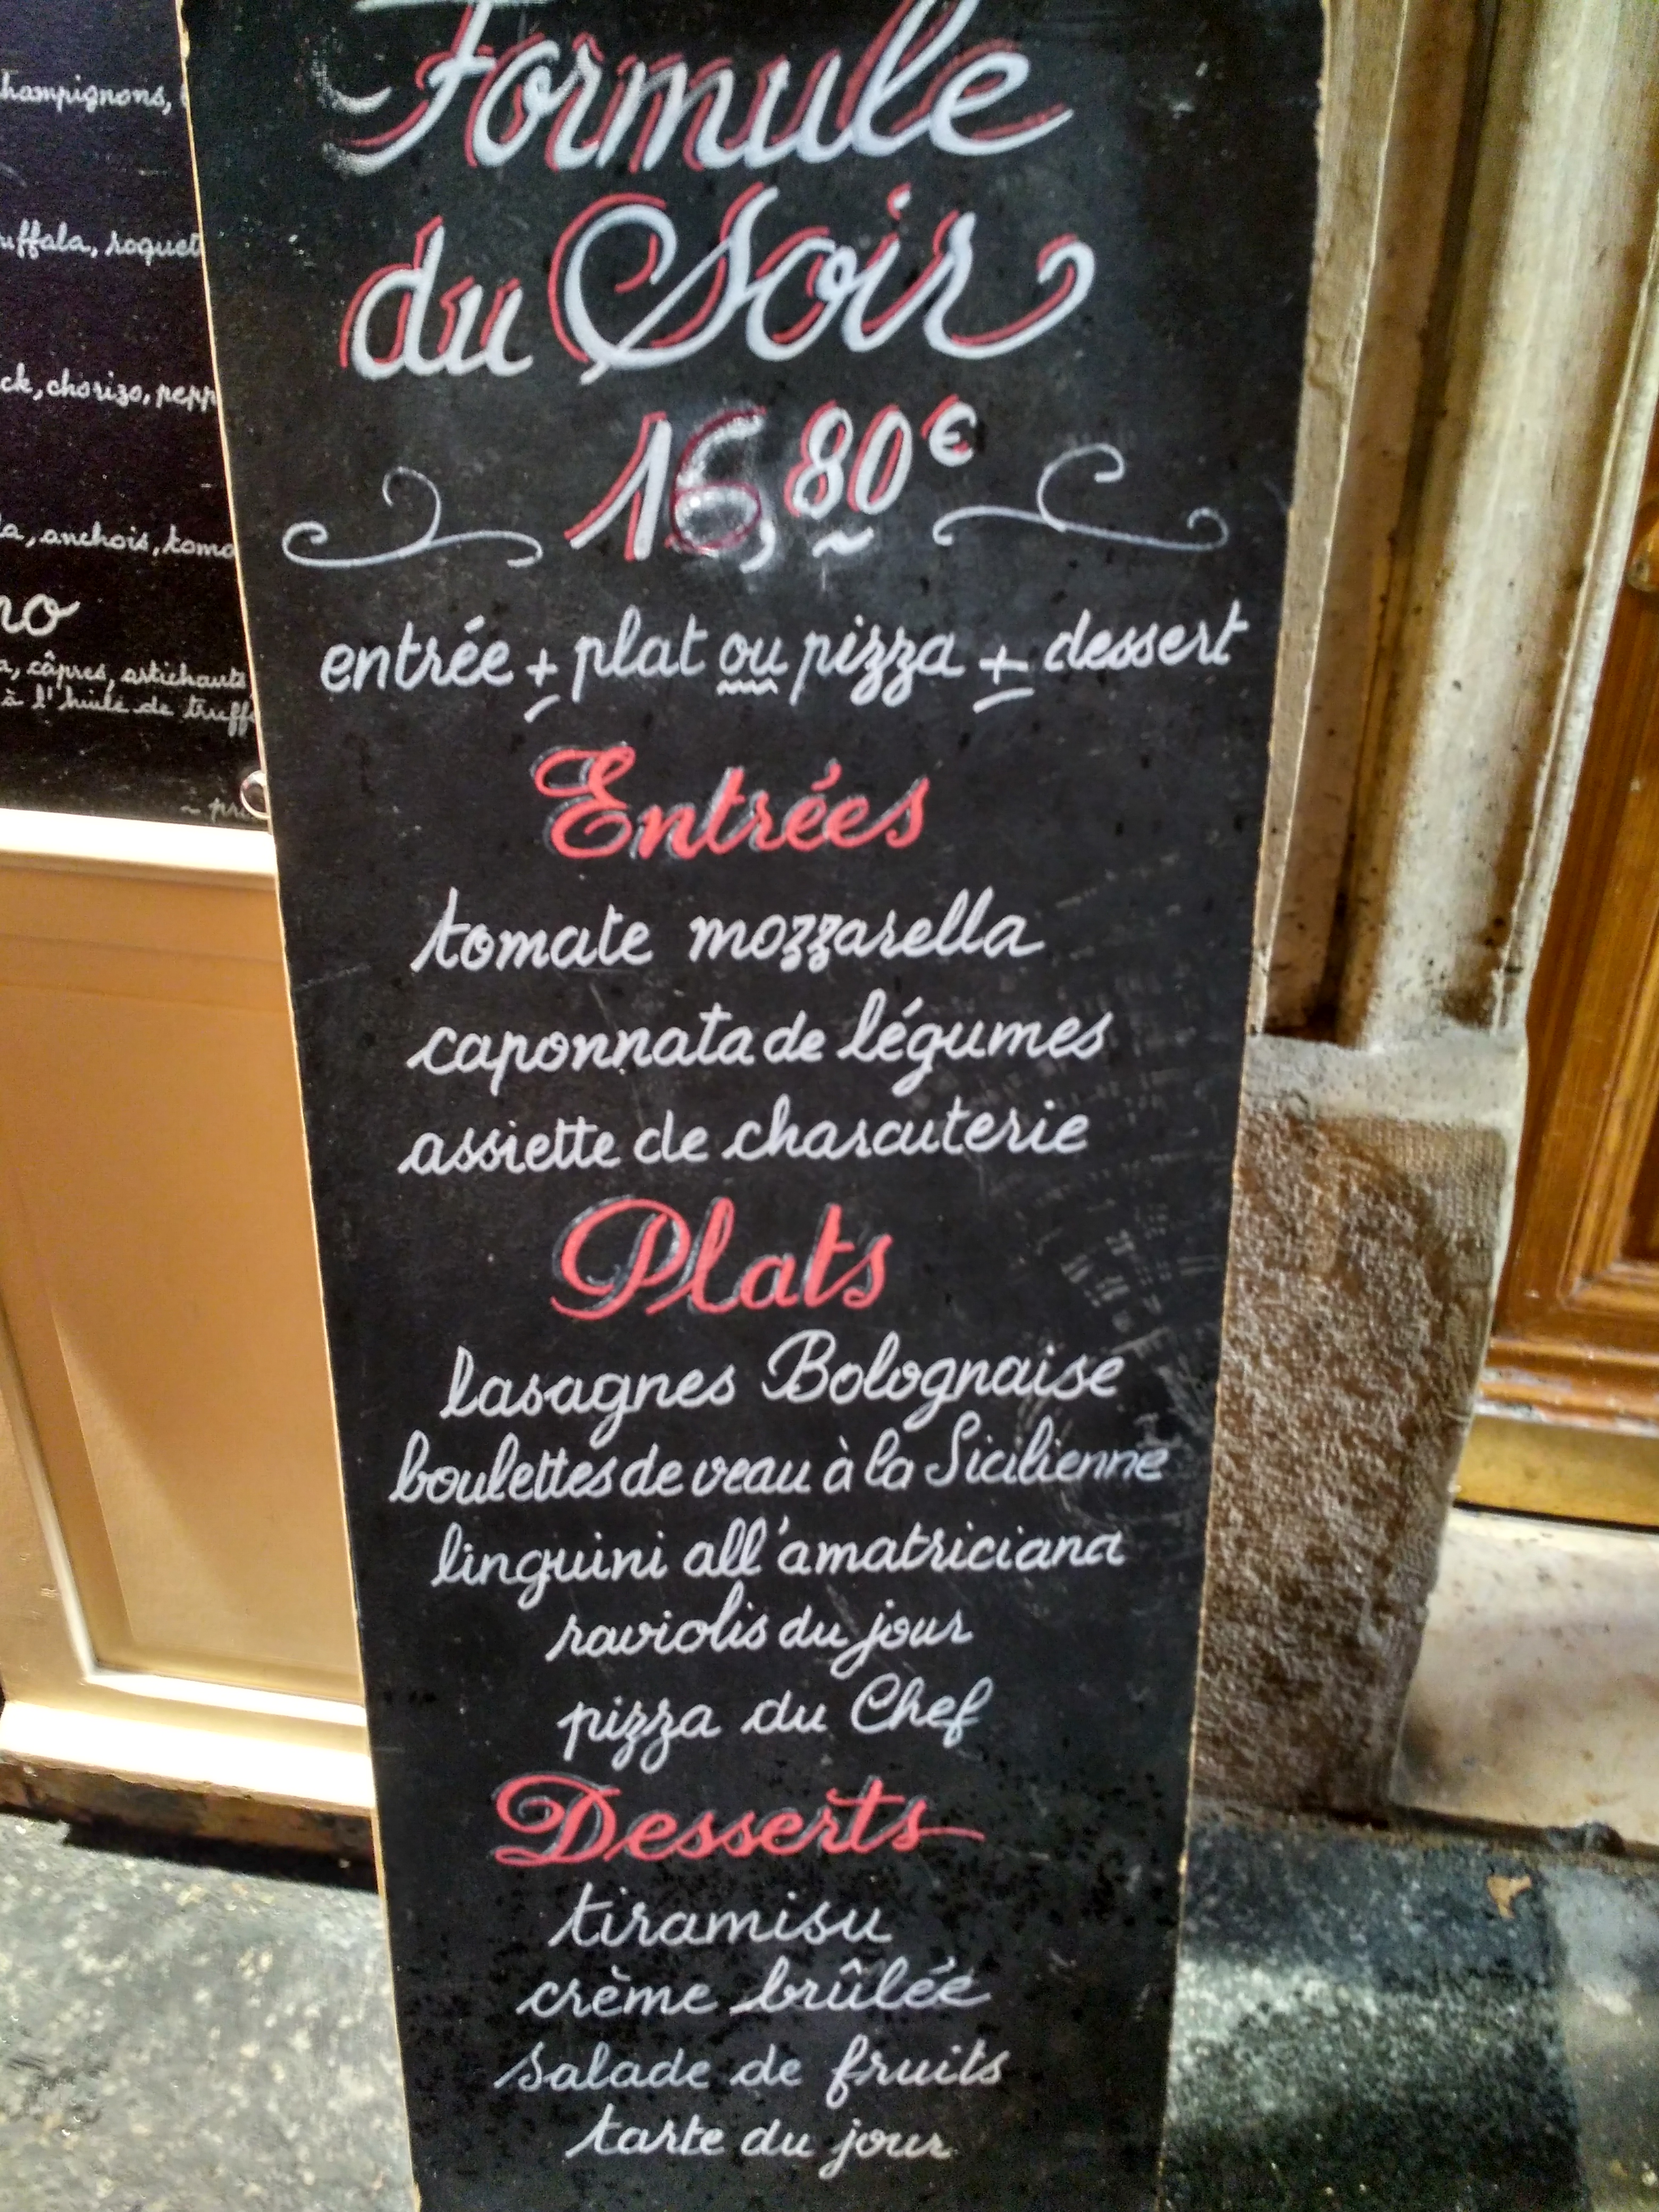 Formule
du Soir
16,80€
entrée + plat ou pizza + dessert
Entrées
tomate mozzarella
caponnata de légumes
assiette de charcuterie
Plats
lasagnes Bolognaise
boulettes de veau à la Sicilienne
linguini all'amatriciana
raviolis du jour
pizza du Chef
Desserts
tiramisu
crème brûlée
salade de fruits
tarte du jour
hampignons,
uffala, roquet
ck, chorizo, pepp
a, anchois, toma
no
a, câpres, artichauts
à l'huile de truff